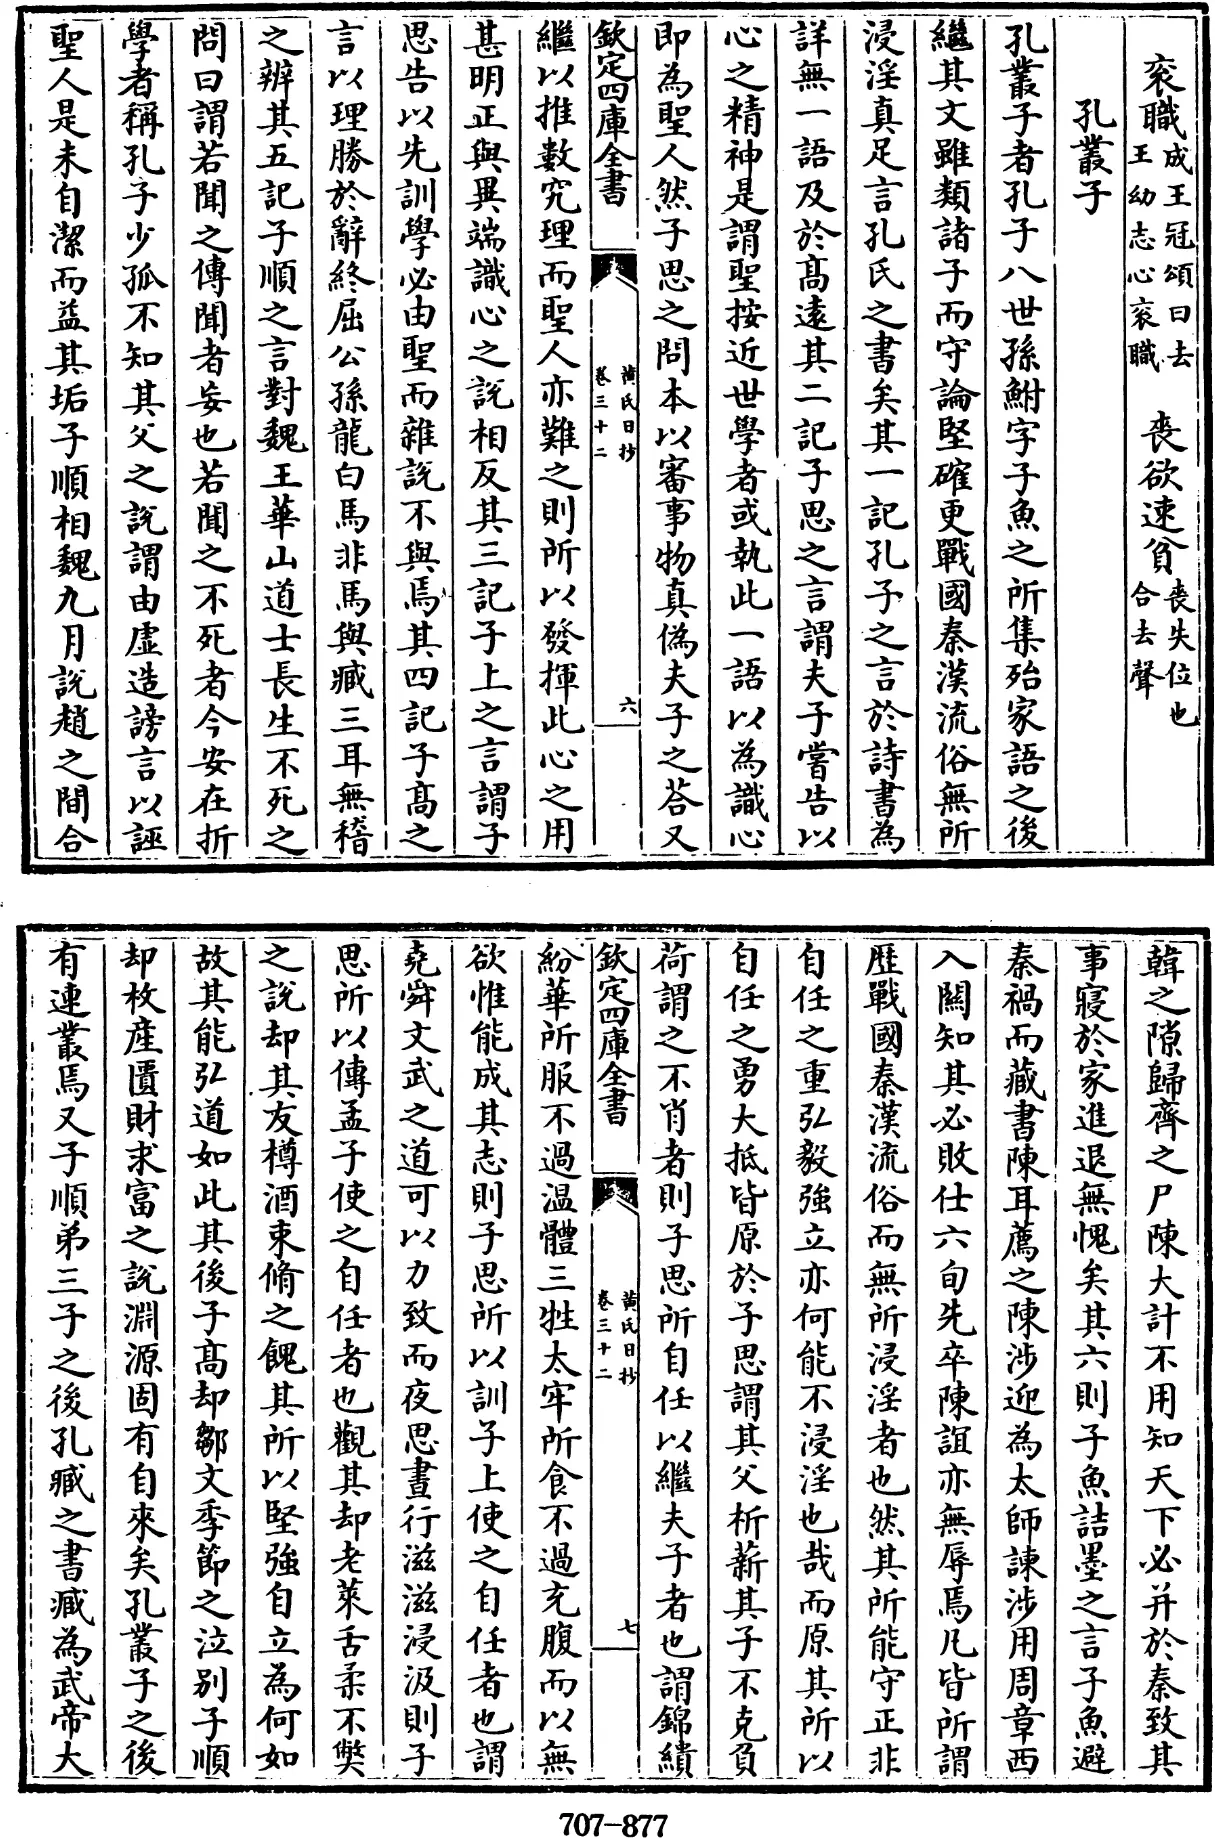 衮職成王冠頌曰去王幼志心衮職 喪欲速貧喪失位也合去聲
孔叢子
孔叢子者孔子八世孫鮒字子魚之所集殆家語之後
繼其文雖類諸子而守論堅確更戰國秦漢流俗無所
浸淫真足言孔氏之書矣其一記孔子之言於詩書為
詳無一語及於髙遠其二記子思之言謂夫子嘗告以
心之精神是謂聖按近世學者或執此一語以為識心
即為聖人然子思之問本以審事物真偽夫子之荅又
欽定四庫全書
黄氏日抄
卷三十二
六
繼以推數究理而聖人亦難之則所以發揮此心之用
甚明正與異端識心之說相反其三記子上之言謂子
思告以先訓學必由聖而雜說不與焉其四記子髙之
言以理勝於辭終屈公孫龍白馬非馬與臧三耳無稽
之辨其五記子順之言對魏王華山道士長生不死之
問曰謂若聞之傳聞者妄也若聞之不死者今安在折
學者稱孔子少孤不知其父之說謂由虛造謗言以誣
聖人是未自潔而益其垢子順相魏九月說趙之間合
韓之隙歸齊之尸陳大計不用知天下必并於秦致其
事寢於家進退無愧矣其六則子魚詰墨之言子魚避
秦禍而藏書陳耳薦之陳涉迎為太師諫涉用周章西
入關知其必敗仕六旬先卒陳誼亦無辱焉凡皆所謂
歴戰國秦漢流俗而無所浸淫者也然其所能守正非
自任之重弘毅強立亦何能不浸淫也哉而原其所以
自任之勇大抵皆原於子思謂其父析薪其子不克負
荷謂之不肖者則子思所自任以繼夫子者也謂錦繢
欽定四庫全書
黄氏日抄
卷三十二
七
紛華所服不過温體三牲太牢所食不過充腹而以無
欲惟能成其志則子思所以訓子上使之自任者也謂
堯舜文武之道可以力致而夜思晝行滋滋浸汲則子
思所以傳孟子使之自任者也觀其却老萊舌柔不弊
之說却其友樽酒束脩之餽其所以堅強自立為何如
故其能弘道如此其後子髙却鄒文季節之泣别子順
却枚産匱財求富之說淵源固有自來矣孔叢子之後
有連叢焉又子順弟三子之後孔臧之書臧為武帝大
707-877